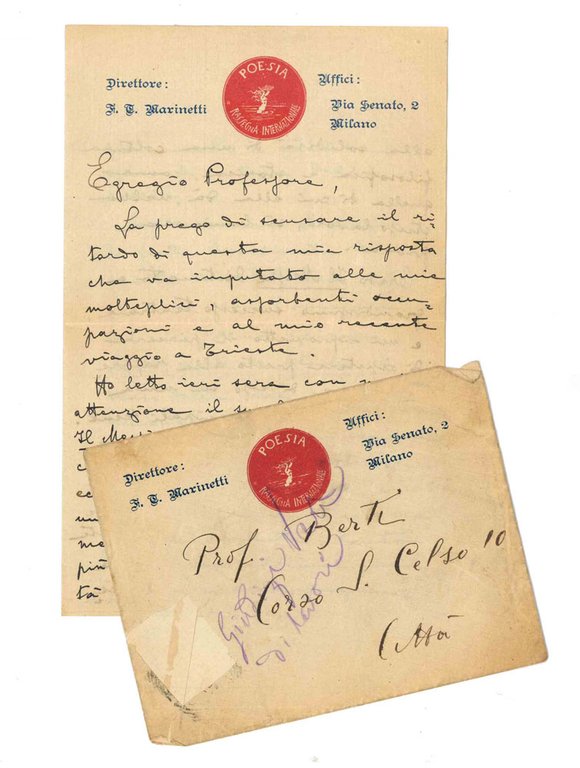 Direttore:
F. T. Marinetti
POESIA
RASSEGNA INTERNAZIONALE
Uffici:
Via Senato, 2
Milano
Egregio Professore,
La prego di scusare il ri-
tardo di questa mia risposta
che va imputato alle mie
molteplici, assorbenti occu-
pazioni e al mio recente
viaggio a Trieste.
Ho letto ieri sera con
attenzione il
Il
me
tà
Direttore:
F. T. Marinetti
POESIA
RASSEGNA INTERNAZIONALE
Uffici:
Via Senato, 2
Milano
Prof. Berti
Corso S. Celso 10
Città